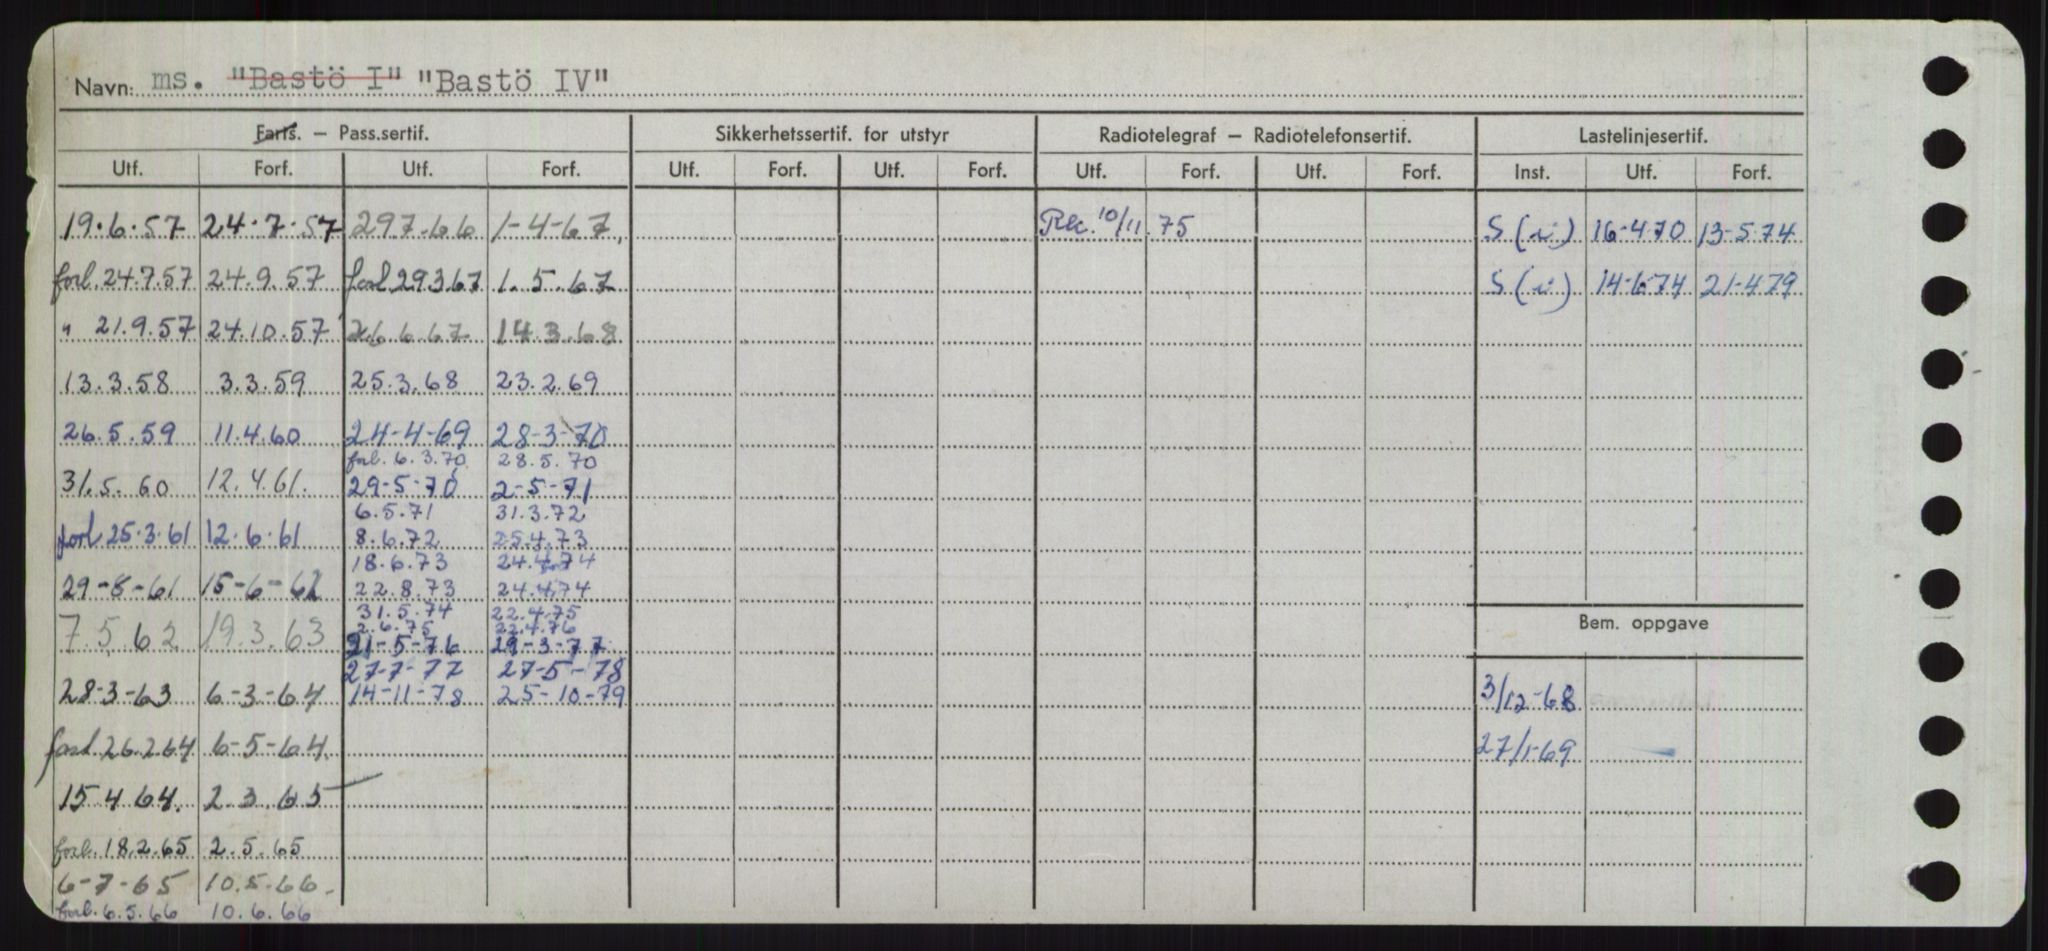 Navn: ms. "Bastö I" "Bastö IV"
Farts. – Pass.sertif. Sikkerhetssertif. for utstyr Radiotelegraf – Radiotelefonsertif. Lastelinjesertif.
Utf. Forf. Utf. Forf. Utf. Forf. Utf. Forf. Utf. Forf. Utf. Forf. Inst. Utf. Forf.
19.6.57 24.7.57 297.66 1-4-67. 10/11 75 S (i) 16-4.70 13-5.74
forl. 24.7.57 24.9.57 forl 29.3.67 1.5.67 S (i) 14-6.74 21-4.79
" 21.9.57 24.10.57 26.6.67 14.3.68
13.3.58 3.3.59 25.3.68 23.2.69
26.5.59 11.4.60 24-4-69 28-3-70
forl. 6.3.70 28.5.70
31.5.60 12.4.61. 29-5-70 2-5-71
6.5.71 31.3.72
forl 25.3.61 12.6.61 8.6.72 25.4.73
18.6.73 24.4.74
29-8-61 15-6-62 22.8.73 24.4.74
31.5.74 22.4.75
7.5.62 19.3.63 2.6.75 22.4.76
21-5-76 29-3-77
27-7-77 27-5-78
28-3-63 6-3-64 14-11-78 25-10-79
Bem. oppgave
3/12-68
forl. 26.2.64 6-5-64. 27/1-69
15.4.64. 2.3.65
forl. 18.2.65 2.5.65
6-7-65 10.5.66.
forl. 6.5.66 10.6.66